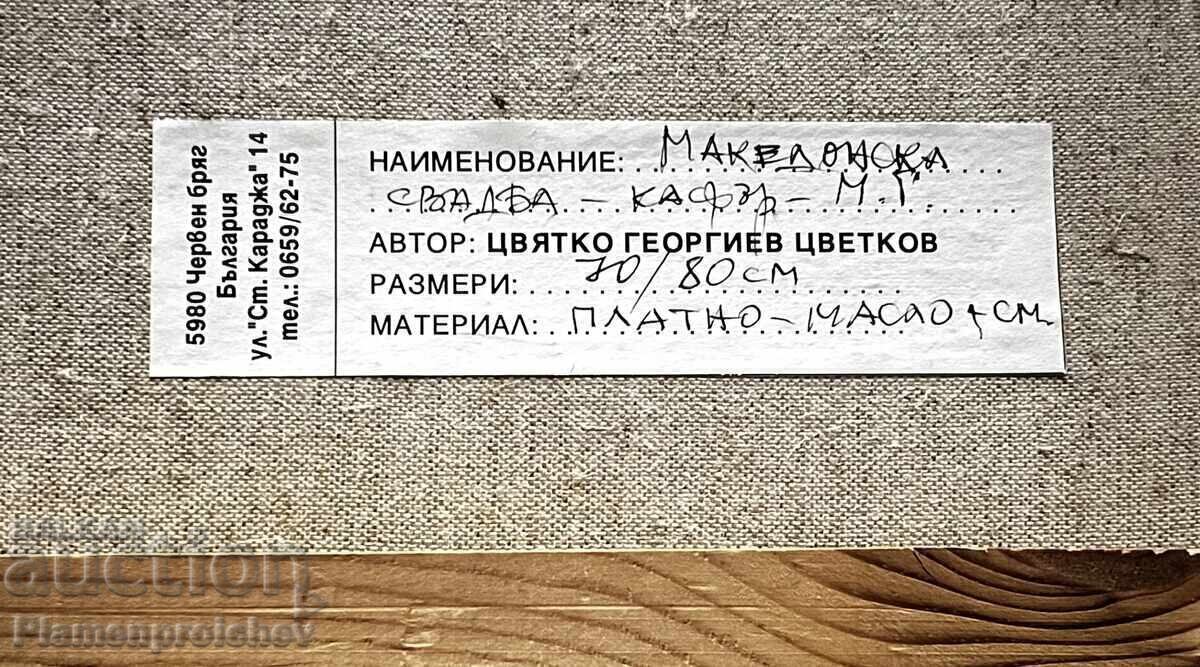 5980 Червен бряг
България
ул."Ст. Караджа" 14
тел.: 0659/62-75
НАИМЕНОВАНИЕ: МАКЕДОНСКА
СВАДБА – КАФЗР – М.Г.
АВТОР: ЦВЯТКО ГЕОРГИЕВ ЦВЕТКОВ
РАЗМЕРИ: 70/80 СМ
МАТЕРИАЛ: ПЛАТНО – МАСЛО, СМ.
BALKAN
auction
Plamenproichev